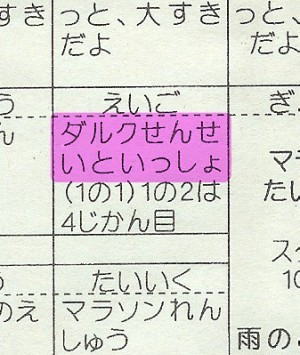 すき
っと、大すき
だよ
っと、
だよ
う
ん
えいご
ダルクせんせ
いといっしょ
(1の1)1の2は
4じかん目
ぎ
マ
たい
ス
10
う
のえ
たいいく
マラソンれん
しゅう
雨の